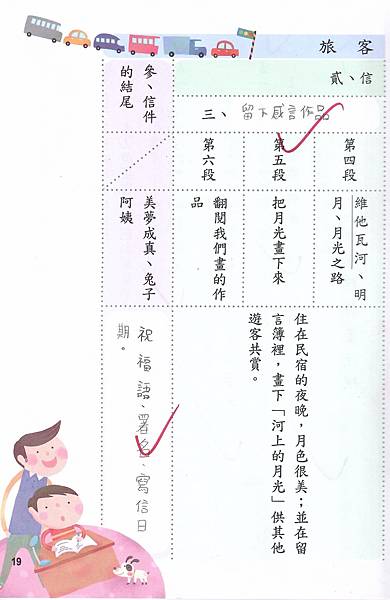 旅客
貳、信
三、留下感言作品
第四段
第五段
第六段
維他瓦河、明
月、月光之路
把月光畫下來
翻閱我們畫的作
品
住在民宿的夜晚，月色很美；並在留
言簿裡，畫下「河上的月光」供其他
遊客共賞。
參、信件
的結尾
美夢成真、兔子
阿姨
祝福語、署名、寫信日
期。
19